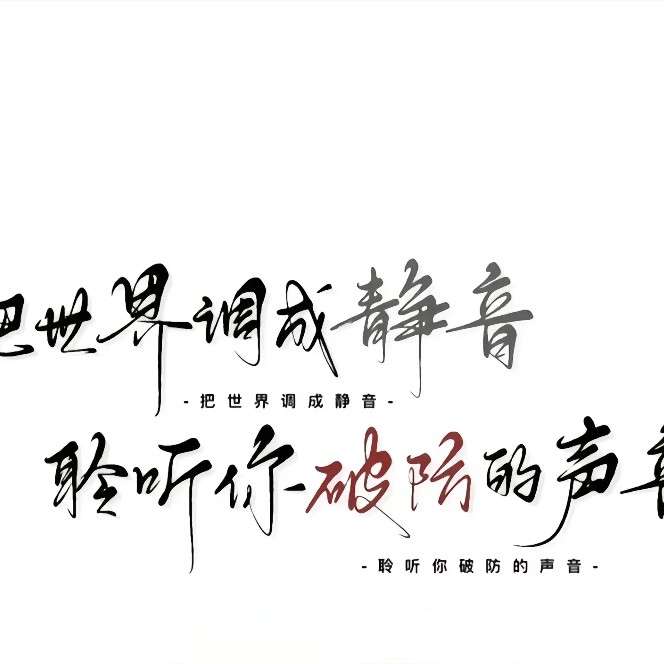 把世界调成静音
-把世界调成静音-
聆听你破防的声音
-聆听你破防的声音-